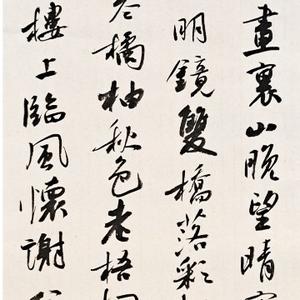 畫裏山晚望晴空
明鏡雙橋落彩
寒橘柚秋色老梧桐
樓上臨風懷謝